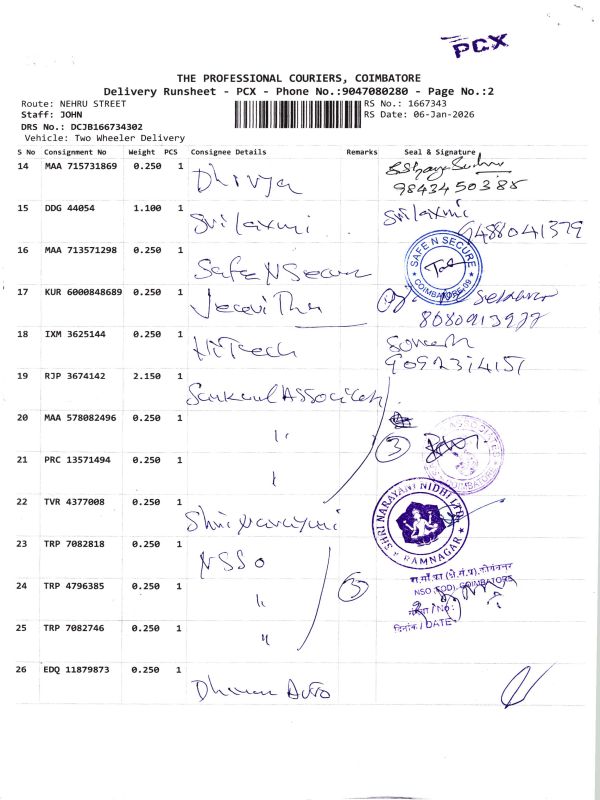 PCX
THE PROFESSIONAL COURIERS, COIMBATORE
Delivery Runsheet - PCX - Phone No.:9047080280 - Page No.:2
Route: NEHRU STREET
RS No.: 1667343
Staff: JOHN
RS Date: 06-Jan-2026
DRS No.: DCJB166734302
Vehicle: Two Wheeler Delivery
S No Consignment No Weight PCS Consignee Details Remarks Seal & Signature
14 MAA 715731869 0.250 1 Dhivya
9843450385
15 DDG 44054 1.100 1 Srilaxmi Srilaxmi
9488041379
16 MAA 713571298 0.250 1 Safe N Secure SAFE N SECURE COIMBATORE-09
17 KUR 6000848689 0.250 1
8080913977
18 IXM 3625144 0.250 1 HiTech
9092374157
19 RJP 3674142 2.150 1 Associates
20 MAA 578082496 0.250 1 " 3
21 PRC 13571494 0.250 1 "
22 TVR 4377008 0.250 1 Shri Narayani SHRI NARAYANI NIDHI LTD. RAMNAGAR
23 TRP 7082818 0.250 1 NSSO
24 TRP 4796385 0.250 1 " 3 NSO (FOD), COIMBATORE
No:
25 TRP 7082746 0.250 1 " दिनांक / DATE
26 EDQ 11879873 0.250 1 Auto